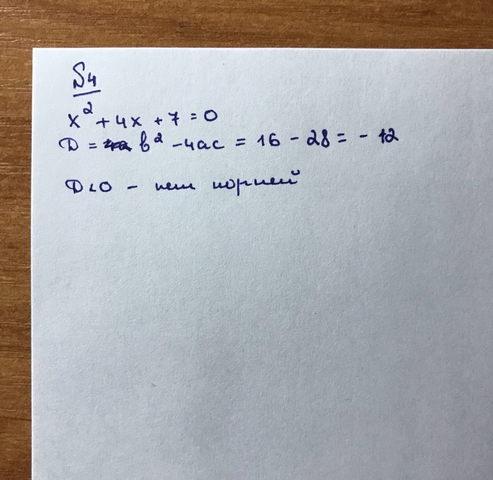 №4
x² + 4x + 7 = 0
D = b² - 4ac = 16 - 28 = - 12
D < 0 - нет корней